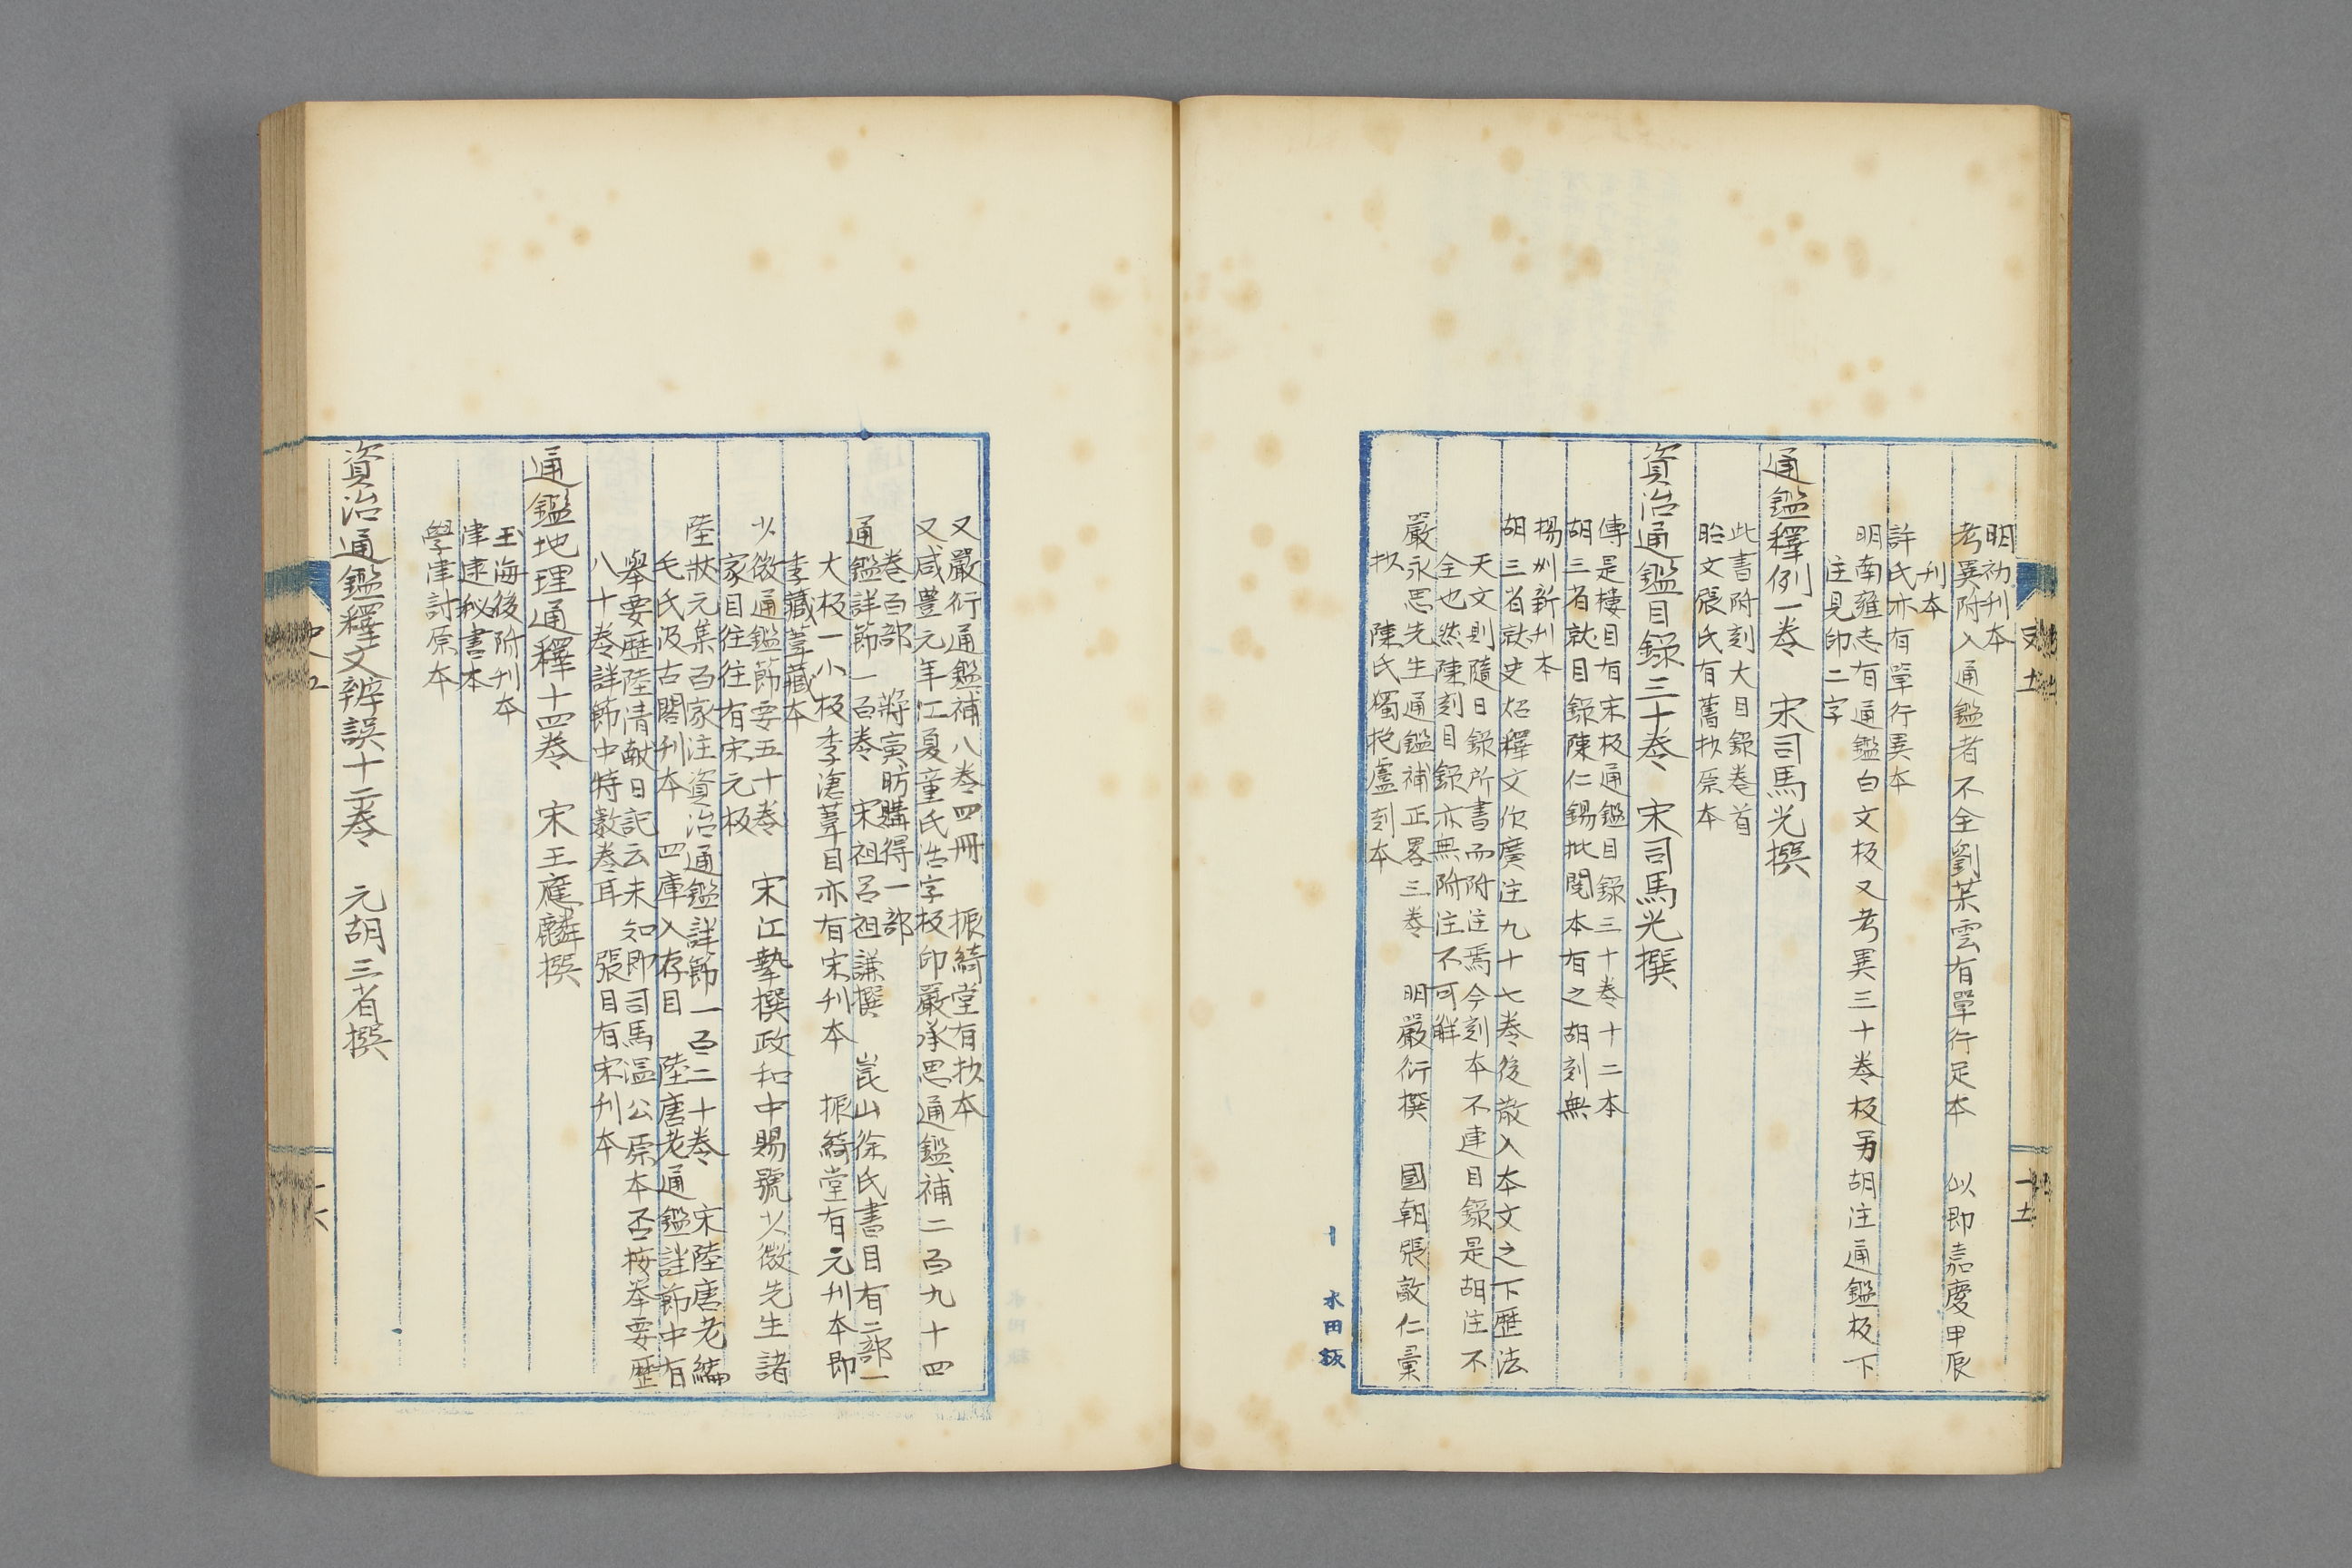 明初刊本
考異附入通鑑者不全劉某雲有單行足本　似即嘉慶甲辰
刊本
許氏亦有單行異本
明南雍志有通鑑白文板又考異三十卷板另胡注通鑑板下
注見印二字
通鑑釋例一卷　宋司馬光撰
此書附刻大目錄卷首
昭文張氏有舊抄原本
資治通鑑目錄三十卷　宋司馬光撰
傳是樓目有宋板通鑑目錄三十卷十二本
胡三省就目錄陳仁錫批閱本有之胡刻無
揚州新刊本
胡三省就史炤釋文作廣注九十七卷後散入本文之下歷法
天文則隨目錄所書而附注焉今刻本不連目錄是胡注不
全也然陳刻目錄亦無附注不可解
嚴永思先生通鑑補正畧三卷　明嚴衍撰　國朝張敵仁彙
抄　陳氏獨抱廬刻本
水田板
又嚴衍通鑑補八卷四冊　振綺堂有抄本
又咸豊元年江夏童氏浩字板印嚴承思通鑑補二百九十四
卷百部　蔣寅昉購得一部
通鑑詳節一百卷　宋祖呂祖謙撰　崑山徐氏書目有二部一
大板一小板季滄葦目亦有宋刊本　振綺堂有元刊本即
季藏葦藏本
少微通鑑節要五十卷　宋江摯撰政和中賜號少微先生諸
家目往往有宋元板
陸狀元集百家注資治通鑑詳節一百二十卷　宋陸唐老編
毛氏汲古閣刊本　四庫入存目　陸唐老通鑑詳節中有
舉要歷陸清獻日記云未知即司馬溫公原本否按举要歷
八十卷詳節中特數卷耳　張目有宋刊本
通鑑地理通釋十四卷　宋王應麟撰
玉海後附刊本
津逮秘書本
學津討原本
資治通鑑釋文辨誤十二卷　元胡三省撰